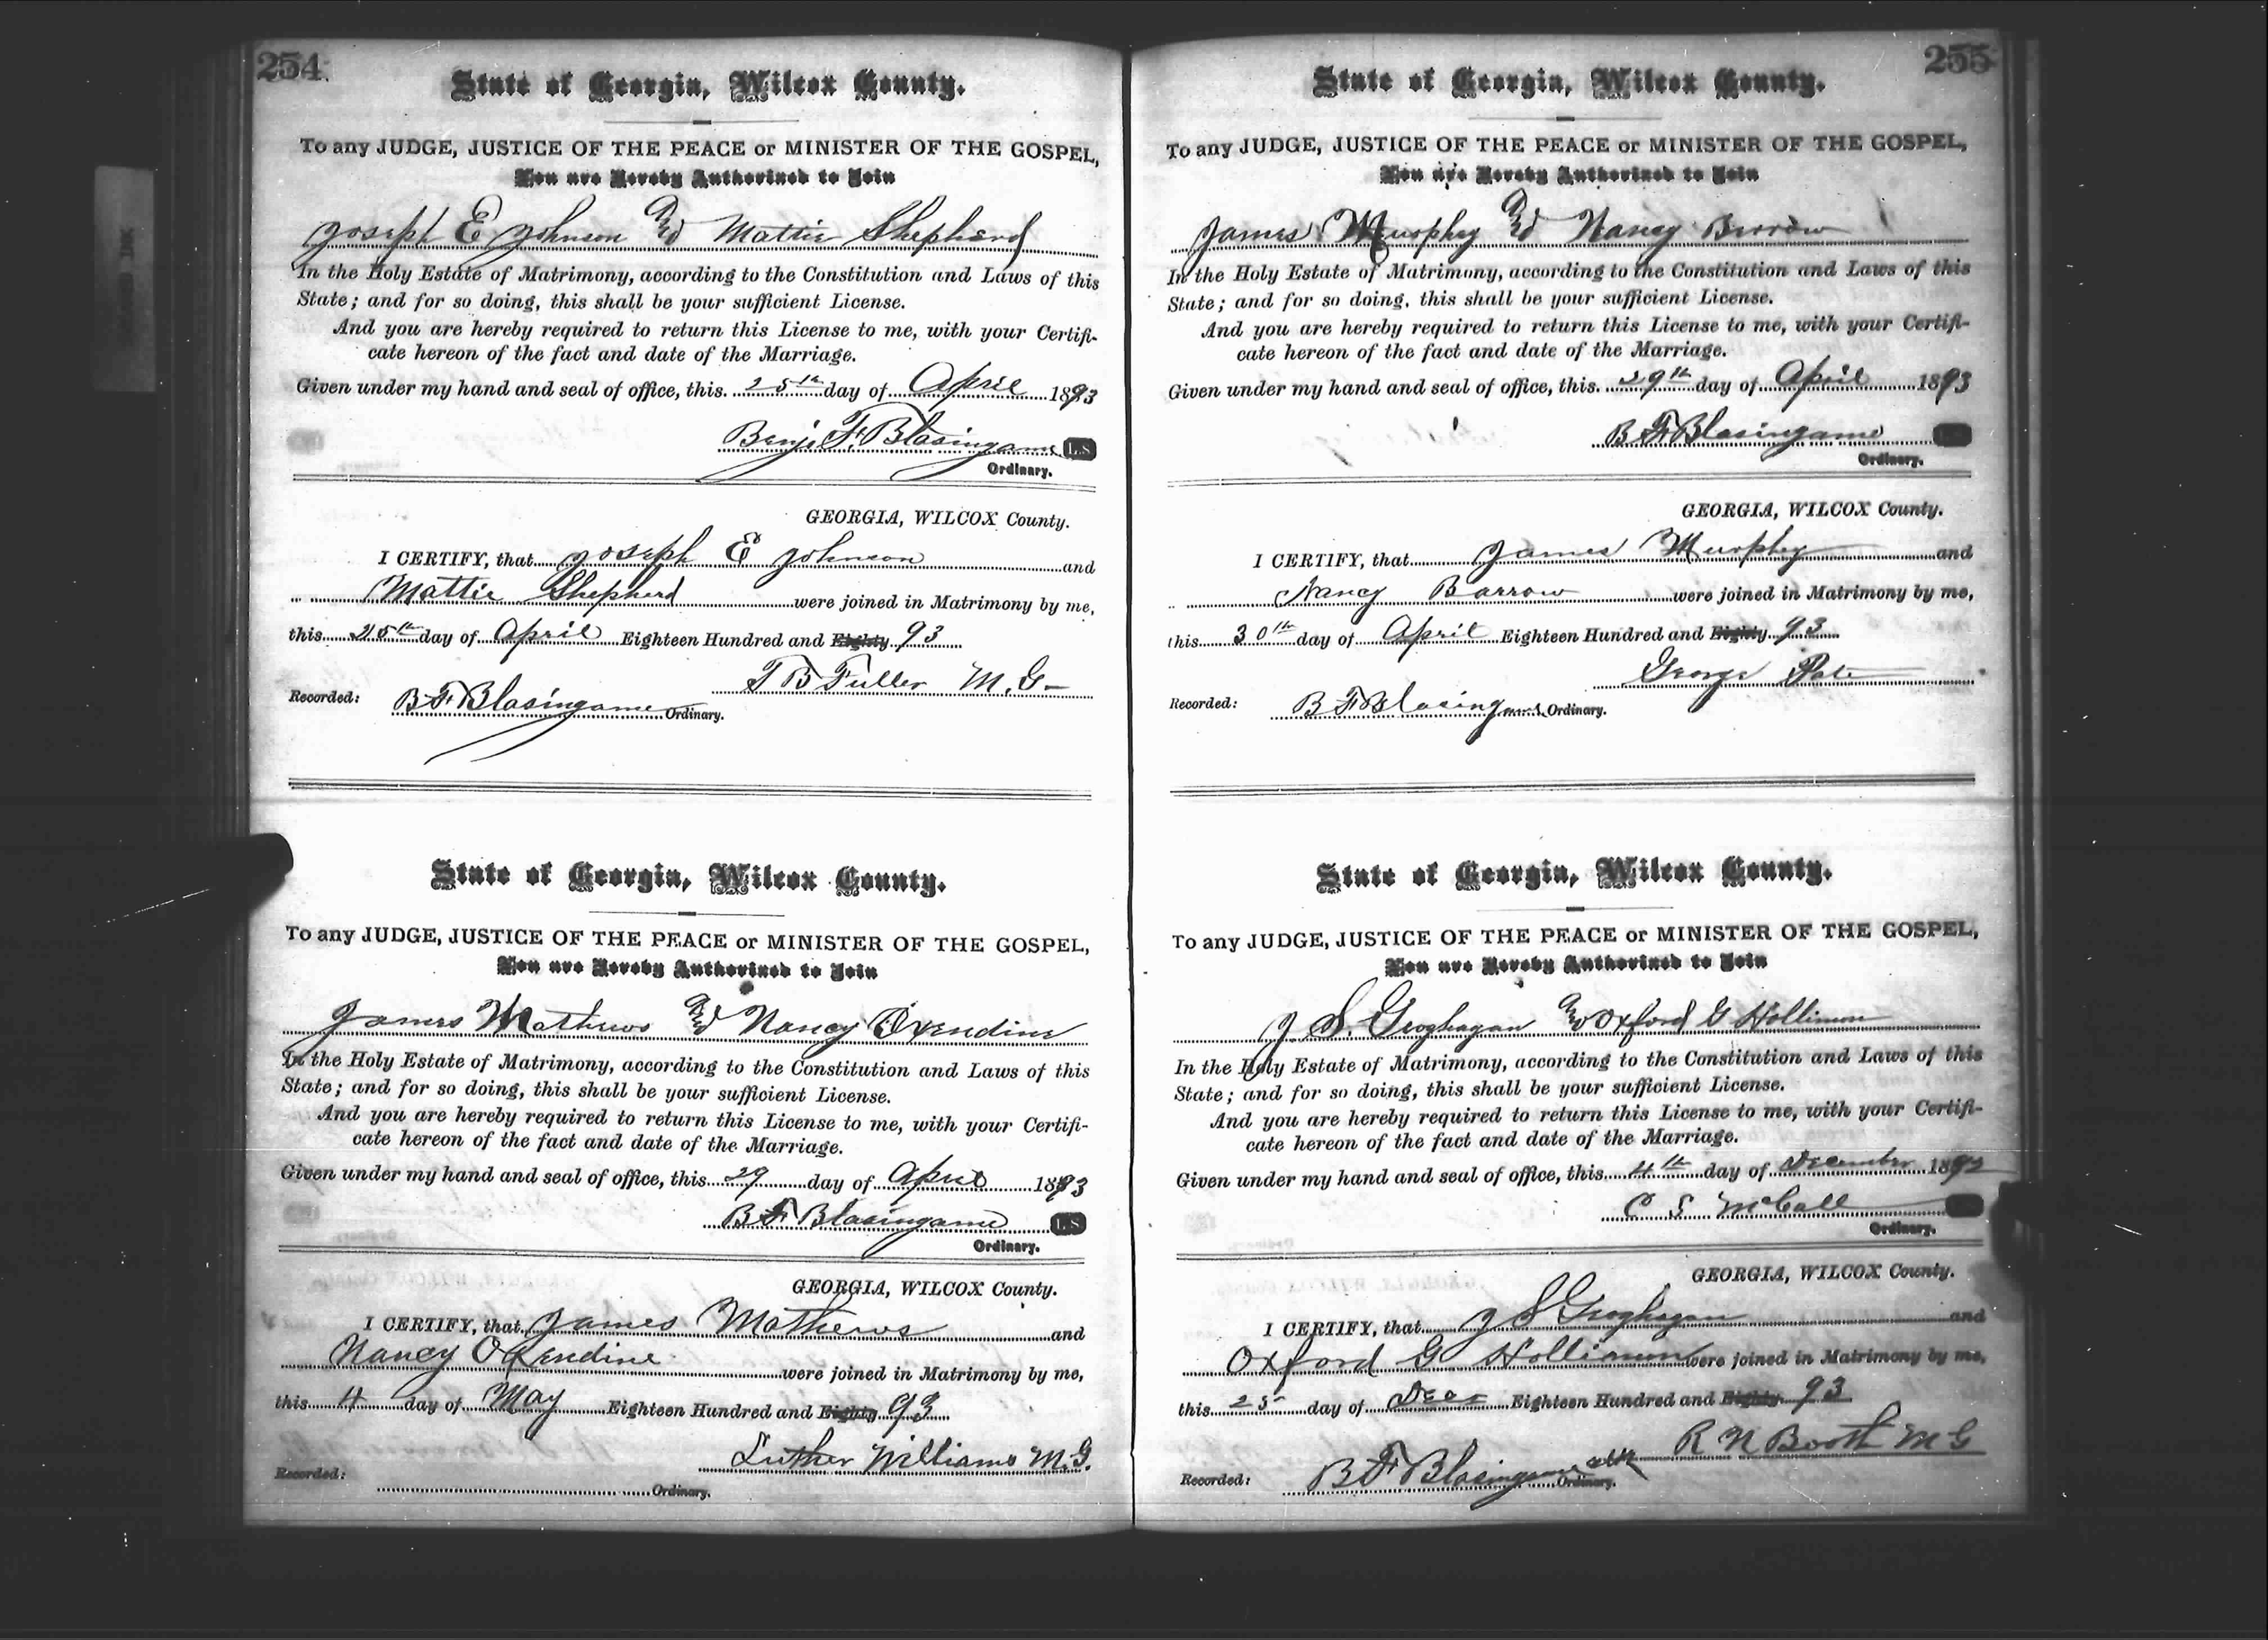 254
State of Georgia, Wilcox County.
To any JUDGE, JUSTICE OF THE PEACE or MINISTER OF THE GOSPEL,
You are Hereby Authorized to Join
Joseph E Johnson And Mattie Shepherd
In the Holy Estate of Matrimony, according to the Constitution and Laws of this
State; and for so doing, this shall be your sufficient License.
And you are hereby required to return this License to me, with your Certifi-
cate hereon of the fact and date of the Marriage.
Given under my hand and seal of office, this 25th day of April 1893
Benj. F. Blasingame L.S
Ordinary.
GEORGIA, WILCOX County.
I CERTIFY, that Joseph E Johnson and
Mattie Shepherd were joined in Matrimony by me,
this 25th day of April Eighteen Hundred and Eighty 93
T B Fuller M.G.
Recorded: B F Blasingame Ordinary.
State of Georgia, Wilcox County.
To any JUDGE, JUSTICE OF THE PEACE or MINISTER OF THE GOSPEL,
You are Hereby Authorized to Join
James Mathews And Nancy Oxendine
In the Holy Estate of Matrimony, according to the Constitution and Laws of this
State; and for so doing, this shall be your sufficient License.
And you are hereby required to return this License to me, with your Certifi-
cate hereon of the fact and date of the Marriage.
Given under my hand and seal of office, this 29 day of April 1893
B F Blasingame L.S
Ordinary.
GEORGIA, WILCOX County.
I CERTIFY, that James Mathews and
Nancy Oxendine were joined in Matrimony by me,
this 4 day of May Eighteen Hundred and Eighty 93
Luther Williams M.G.
Recorded: Ordinary.
255
State of Georgia, Wilcox County.
To any JUDGE, JUSTICE OF THE PEACE or MINISTER OF THE GOSPEL,
You are Hereby Authorized to Join
James Murphey And Nancy Burrow
In the Holy Estate of Matrimony, according to the Constitution and Laws of this
State; and for so doing, this shall be your sufficient License.
And you are hereby required to return this License to me, with your Certifi-
cate hereon of the fact and date of the Marriage.
Given under my hand and seal of office, this 29th day of April 1893
B F Blasingame
Ordinary.
GEORGIA, WILCOX County.
I CERTIFY, that James Murphey and
Nancy Barrow were joined in Matrimony by me,
this 30th day of April Eighteen Hundred and Eighty 93
George Pate
Recorded: B F Blasingame Ordinary.
State of Georgia, Wilcox County.
To any JUDGE, JUSTICE OF THE PEACE or MINISTER OF THE GOSPEL,
You are Hereby Authorized to Join
J S. Geoghagan And Oxford G Hollimon
In the Holy Estate of Matrimony, according to the Constitution and Laws of this
State; and for so doing, this shall be your sufficient License.
And you are hereby required to return this License to me, with your Certifi-
cate hereon of the fact and date of the Marriage.
Given under my hand and seal of office, this 4th day of December 1892
C S McCall
Ordinary.
GEORGIA, WILCOX County.
I CERTIFY, that J S Geoghagan and
Oxford G Hollimon were joined in Matrimony by me,
this 25 day of Dec Eighteen Hundred and Eighty 93
R N Booth M G
Recorded: B F Blasingame Ordinary.